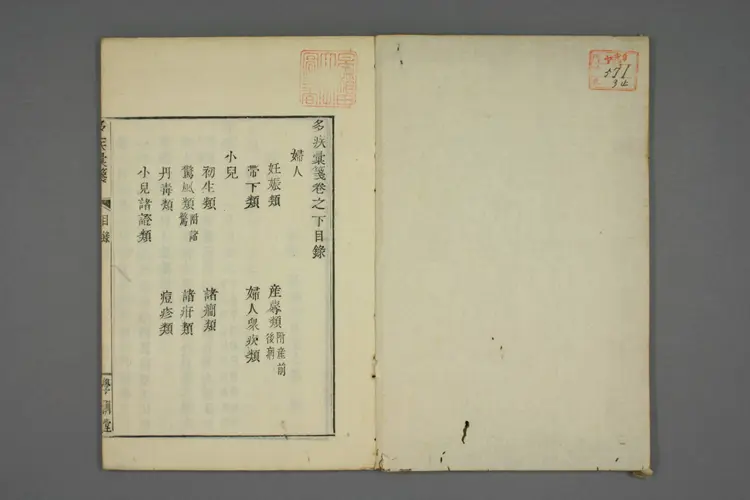 名疾彙箋卷之下目錄
婦人
妊娠類 產蓐類附產前後病
帶下類 婦人衆疾類
小兒
初生類 諸癎類
驚風類附諸驚 諸疳類
丹毒類 痘疹類
小兒諸證類
目錄
學訓堂
571
34